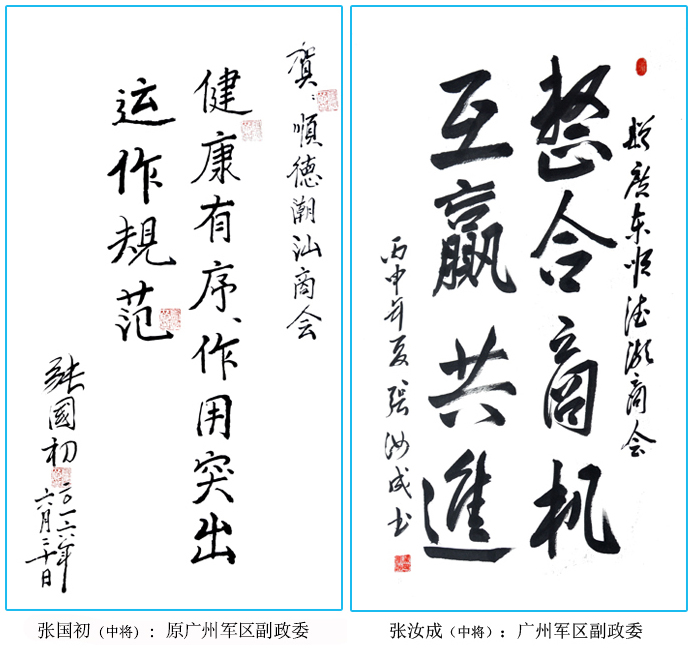 贺：順德潮汕商会
健康有序、作用突出
运作規范
張國初
二〇一六年
六月三十日
张国初（中将）：原广州军区副政委
赠廣东顺德潮商会
整合商机
互赢共進
丙申年夏张汝成书
张汝成（中将）：广州军区副政委